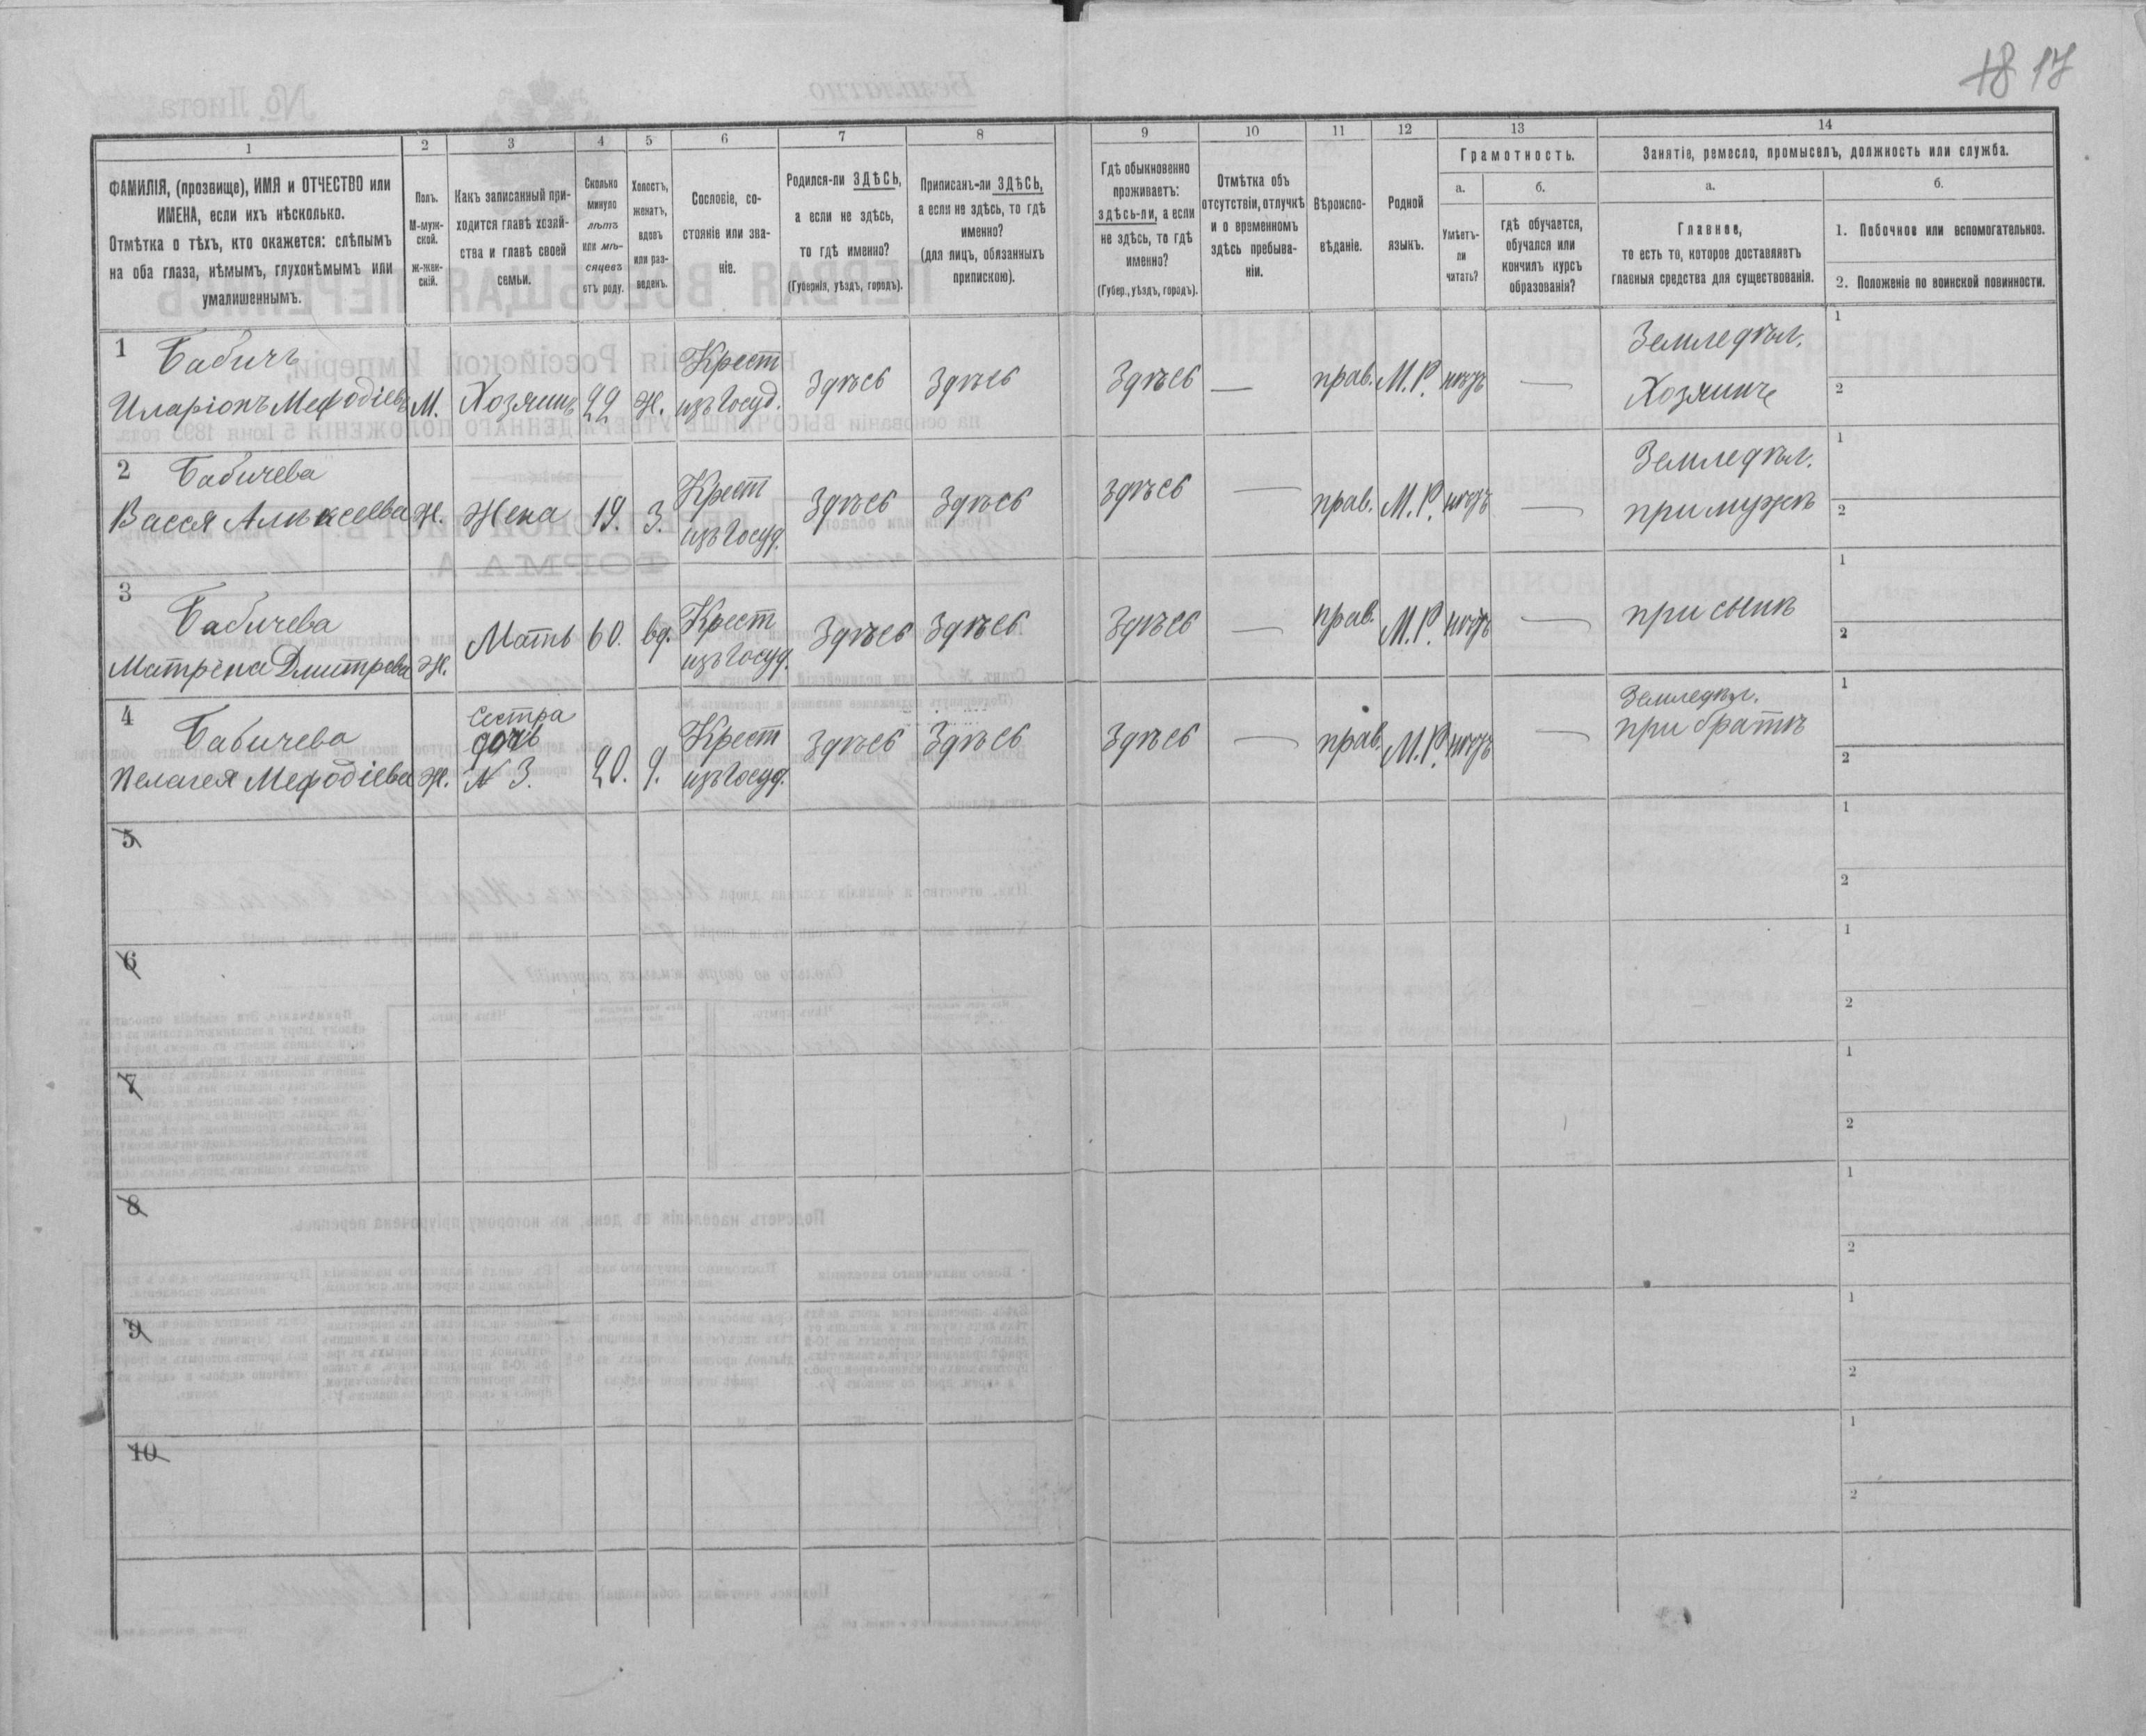 18 17
1 2 3 4 5 6 7 8 9 10 11 12 13 14
ФАМИЛІЯ, (прозвище), ИМЯ и ОТЧЕСТВО или
ИМЕНА, если ихъ нѣсколько.
Отмѣтка о тѣхъ, кто окажется: слѣпымъ
на оба глаза, нѣмымъ, глухонѣмымъ или
умалишеннымъ.
Полъ.
М-муж-
ской.
ж-жен-
скій.
Какъ записанный при-
ходится главѣ хозяй-
ства и главѣ своей
семьи.
Сколько
минуло
лѣтъ
или мѣ-
сяцевъ
отъ роду.
Холостъ,
женатъ,
вдовъ
или раз-
веденъ.
Сословіе, со-
стояніе или зва-
ніе.
Родился-ли ЗДѢСЬ,
а если не здѣсь,
то гдѣ именно?
(Губернія, уѣздъ, городъ).
Приписанъ-ли ЗДѢСЬ,
а если не здѣсь, то гдѣ
именно?
(для лицъ, обязанныхъ
припискою).
Гдѣ обыкновенно
проживаетъ:
здѣсь-ли, а если
не здѣсь, то гдѣ
именно?
(Губер., уѣздъ, городъ).
Отмѣтка объ
отсутствіи, отлучкѣ
и о временномъ
здѣсь пребыва-
ніи.
Вѣроиспо-
вѣданіе.
Родной
языкъ.
Грамотность.
а.
Умѣетъ-
ли
читать?
б.
гдѣ обучается,
обучался или
кончилъ курсъ
образованія?
Занятіе, ремесло, промыселъ, должность или служба.
а.
Главное,
то есть то, которое доставляетъ
главныя средства для существованія.
б.
1. Побочное или вспомогательное.
2. Положеніе по воинской повинности.
1 Бабичъ Крест Земледѣл. 1
Иларіонъ Мефодіевъ М. Хозяинъ 22 Ж. изъ Госуд. Здѣсь Здѣсь Здѣсь — прав. М.Р. нѣтъ — Хозяинъ 2
2 Бабичева Крест Земледѣл. 1
Васся Алексеева Ж. Жена 19. З. изъ Госуд. Здѣсь Здѣсь Здѣсь — прав. М.Р. нѣтъ — при мужѣ 2
3 Бабичева Крест 1
Матрёна Дмитрева Ж. Мать 60. вд. изъ Госуд. Здѣсь Здѣсь Здѣсь — прав. М.Р. нѣтъ — при сынѣ 2
4 Бабичева Сестра дочь Крест Земледѣл. 1
Пелагея Мефодіева Ж. № 3. 20. д. изъ Госуд. Здѣсь Здѣсь Здѣсь — прав. М.Р. нѣтъ — при братѣ 2
5 1
2
6 1
2
7 1
2
8 1
2
9 1
2
10 1
2